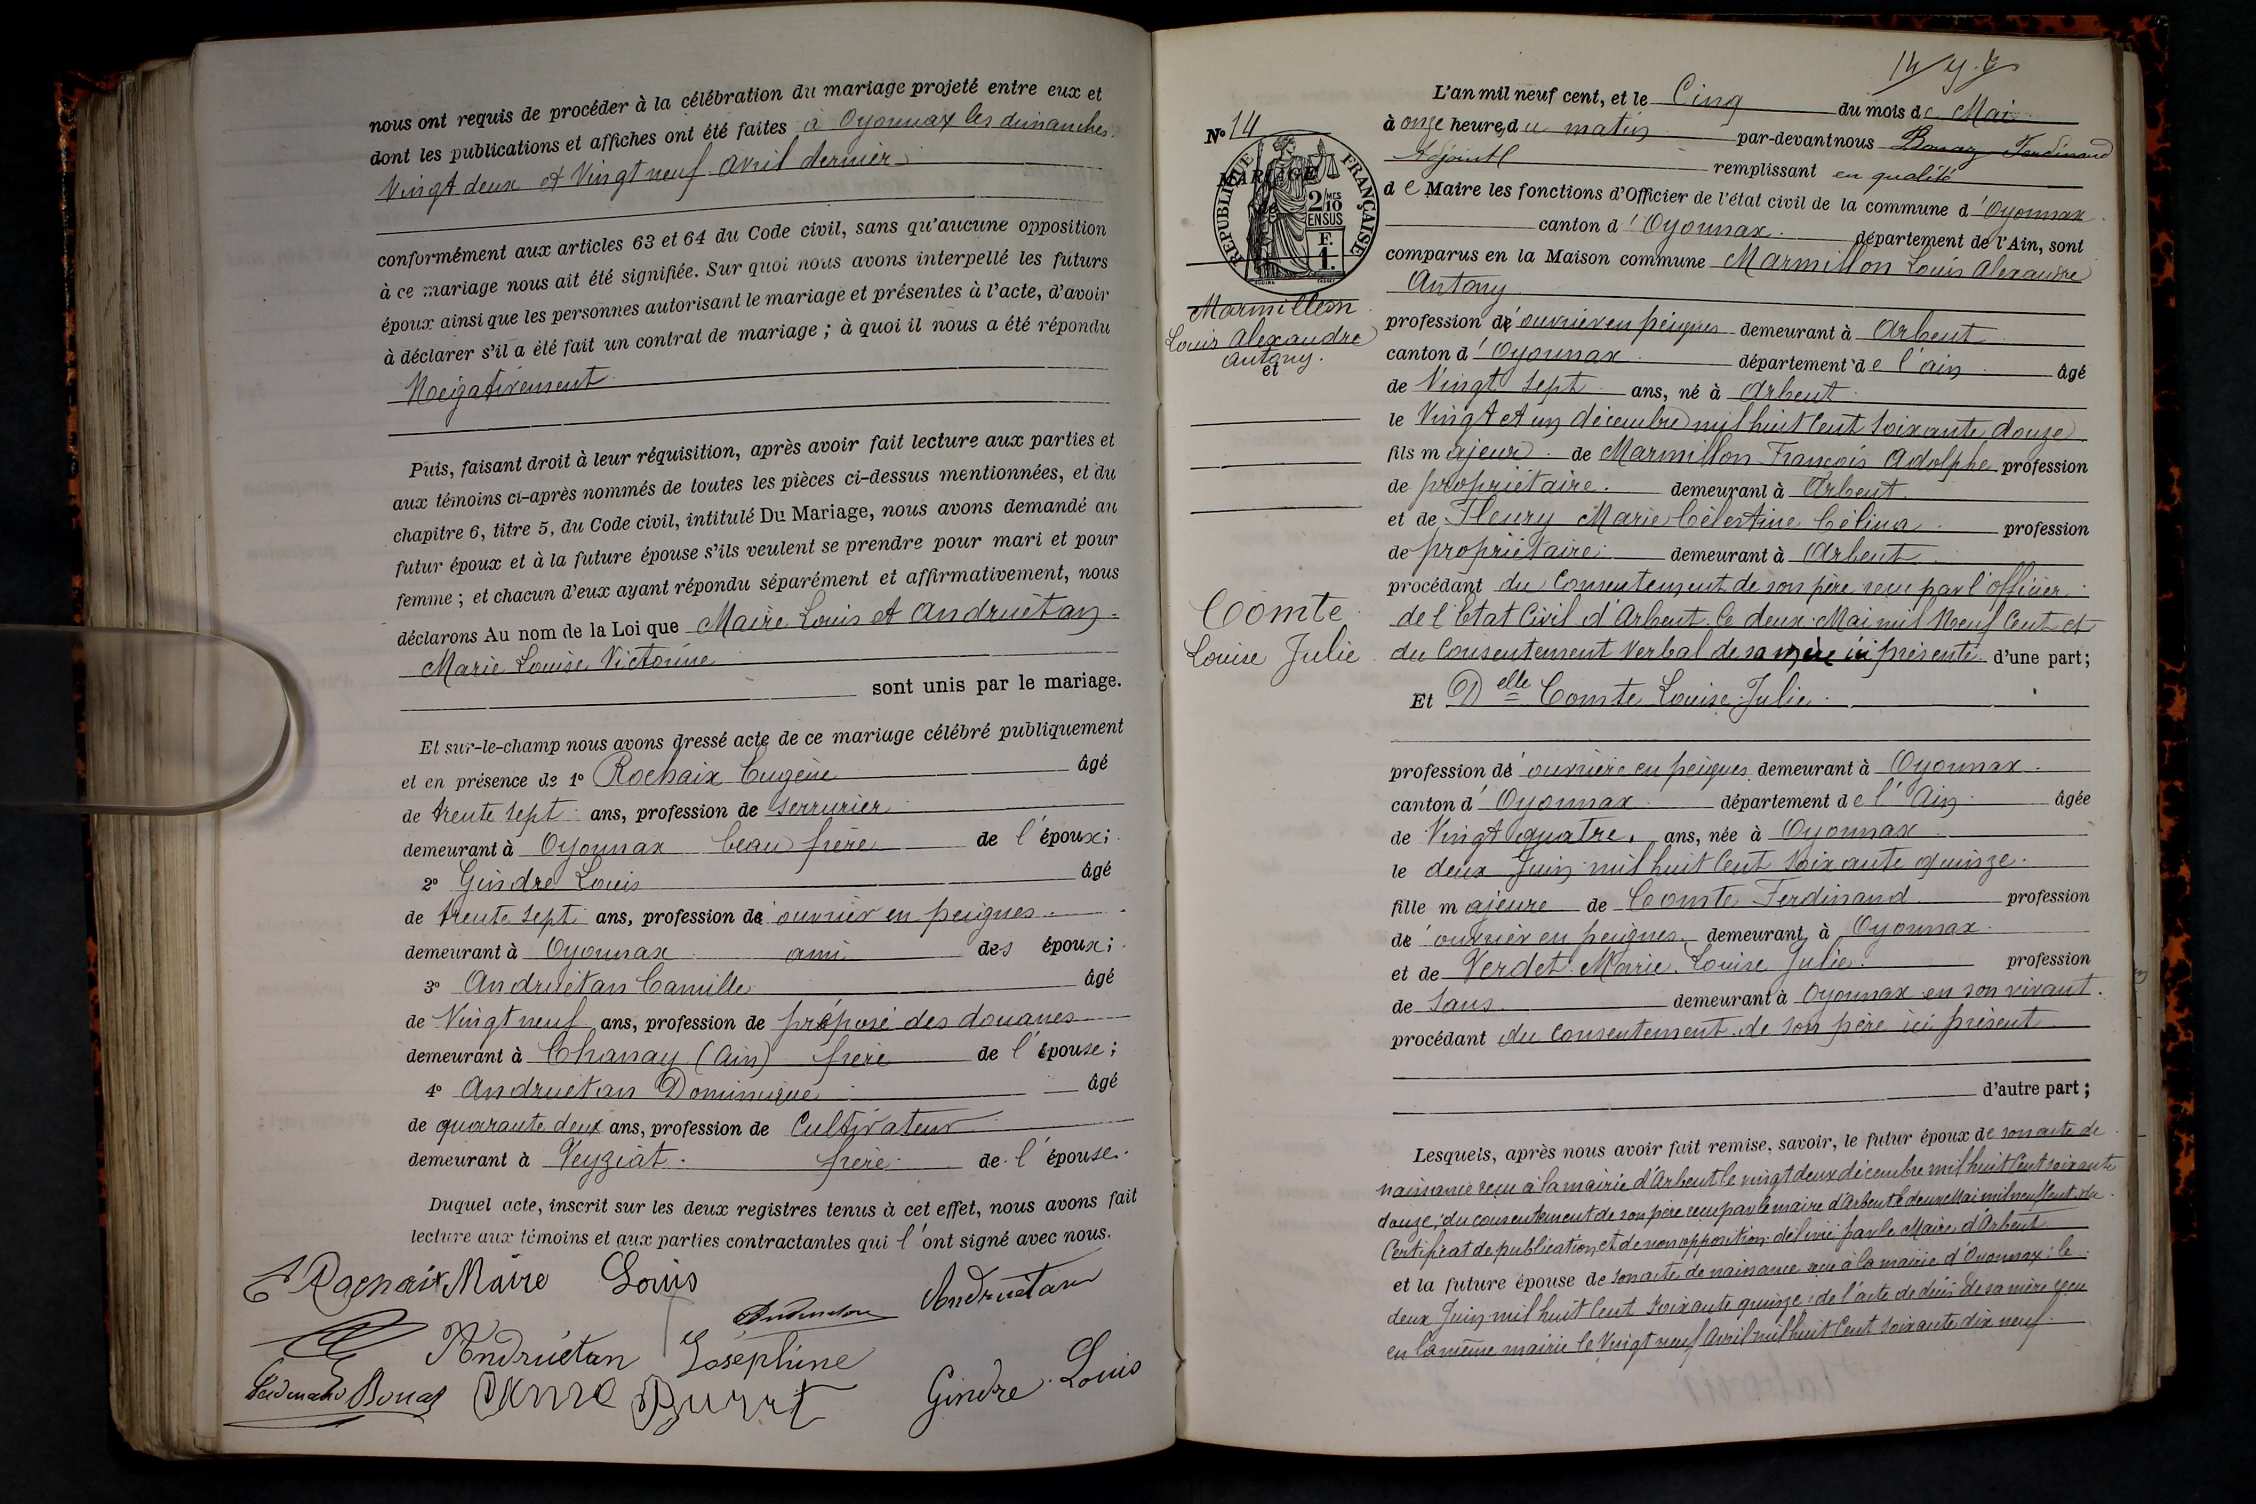 nous ont requis de procéder à la célébration du mariage projeté entre eux et
dont les publications et affiches ont été faites à Oyonnax les dimanches
Vingt deux et Vingt neuf avril dernier
conformément aux articles 63 et 64 du Code civil, sans qu'aucune opposition
à ce mariage nous ait été signifiée. Sur quoi nous avons interpellé les futurs
époux ainsi que les personnes autorisant le mariage et présentes à l'acte, d'avoir
à déclarer s'il a été fait un contrat de mariage ; à quoi il nous a été répondu
Négativement
Puis, faisant droit à leur réquisition, après avoir fait lecture aux parties et
aux témoins ci-après nommés de toutes les pièces ci-dessus mentionnées, et du
chapitre 6, titre 5, du Code civil, intitulé Du Mariage, nous avons demandé au
futur époux et à la future épouse s'ils veulent se prendre pour mari et pour
femme ; et chacun d'eux ayant répondu séparément et affirmativement, nous
déclarons Au nom de la Loi que Maire Louis et Andruétan
Marie Louise Victorine
sont unis par le mariage.
Et sur-le-champ nous avons dressé acte de ce mariage célébré publiquement
et en présence de 1º Rochaix Eugène âgé
de trente sept ans, profession de serrurier
demeurant à Oyonnax beau frère de l'époux ;
2º Gindre Louis âgé
de trente sept ans, profession d'ouvrier en peignes
demeurant à Oyonnax ami des époux ;
3º Andruétan Camille âgé
de Vingt neuf ans, profession de préposé des douanes
demeurant à Chanay (Ain) frère de l'épouse ;
4º Andruétan Dominique âgé
de quarante deux ans, profession de Cultivateur
demeurant à Veyziat frère de l'épouse.
Duquel acte, inscrit sur les deux registres tenus à cet effet, nous avons fait
lecture aux témoins et aux parties contractantes qui l'ont signé avec nous.
E Rochaix Maire Louis
Andruétan
Andruétan Joséphine
Ferdinand Bonaz
Gindre Louis
Nº 14
MARIAGE
RÉPUBLIQUE FRANÇAISE
2/10 MES
EN SUS
F.
1.
Marmillon
Louis Alexandre
Antony.
et
Comte
Louise Julie
L'an mil neuf cent, et le Cinq du mois de Mai
à onze heures du matin par-devant nous Bonaz Ferdinand
Adjoint remplissant en qualité
de Maire les fonctions d'Officier de l'état civil de la commune d'Oyonnax
canton d'Oyonnax département de l'Ain, sont
comparus en la Maison commune Marmillon Louis Alexandre
Antony
profession d'ouvrier en peignes demeurant à Arbent
canton d'Oyonnax département de l'ain âgé
de Vingt sept ans, né à Arbent
le Vingt et un décembre mil huit Cent soixante douze
fils majeur de Marmillon François Adolphe profession
de propriétaire demeurant à Arbent
et de Fleury Marie Célestine Célina profession
de propriétaire demeurant à Arbent
procédant du Consentement de son père reçu par l'officier
de l'Etat Civil d'Arbent le deux Mai mil Neuf Cent et
du Consentement Verbal de sa mère ici présente d'une part ;
Et Delle Comte Louise Julie
profession d'ouvrière en peignes demeurant à Oyonnax
canton d'Oyonnax département de l'Ain âgée
de Vingt quatre ans, née à Oyonnax
le deux Juin mil huit Cent soixante quinze
fille majeure de Comte Ferdinand profession
d'ouvrier en peignes demeurant à Oyonnax
et de Verdet Marie Louise Julie profession
de Sans demeurant à Oyonnax en son vivant
procédant du Consentement de son père ici présent
d'autre part ;
Lesquels, après nous avoir fait remise, savoir, le futur époux de son acte de
naissance reçu à la mairie d'Arbent le vingt deux décembre mil huit Cent soixante
douze ; du consentement de son père reçu par le maire d'Arbent le deux Mai mil neuf Cent, du
Certificat de publication et de non opposition délivré par le Maire d'Arbent
et la future épouse de son acte de naissance reçu à la mairie d'Oyonnax le
deux Juin mil huit Cent soixante quinze ; de l'acte de décès de sa mère reçu
en la même mairie le Vingt neuf Avril mil huit Cent soixante dix neuf.